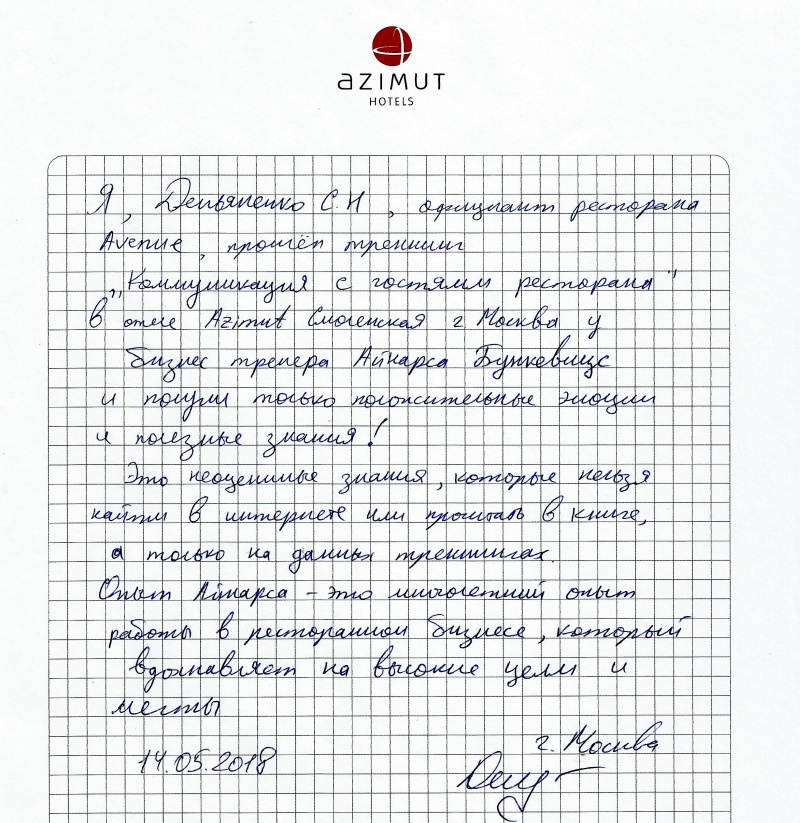 azimut
HOTELS
Я, Демьяненко С.Н, официант ресторана
Avenue, прошёл тренинг
„Коммуникация с гостями ресторана"
в отеле Azimut Смоленская г. Москва у
бизнес тренера Айнарса Бункевицс
и получил только положительные эмоции
и полезные знания!
Это неоценимые знания, которые нельзя
найти в интернете или прочитать в книге,
а только на данных тренингах.
Опыт Айнарса – это многолетний опыт
работы в ресторанном бизнесе, который
вдохнавляет на высокие цели и
мечты
г. Москва
14.05.2018